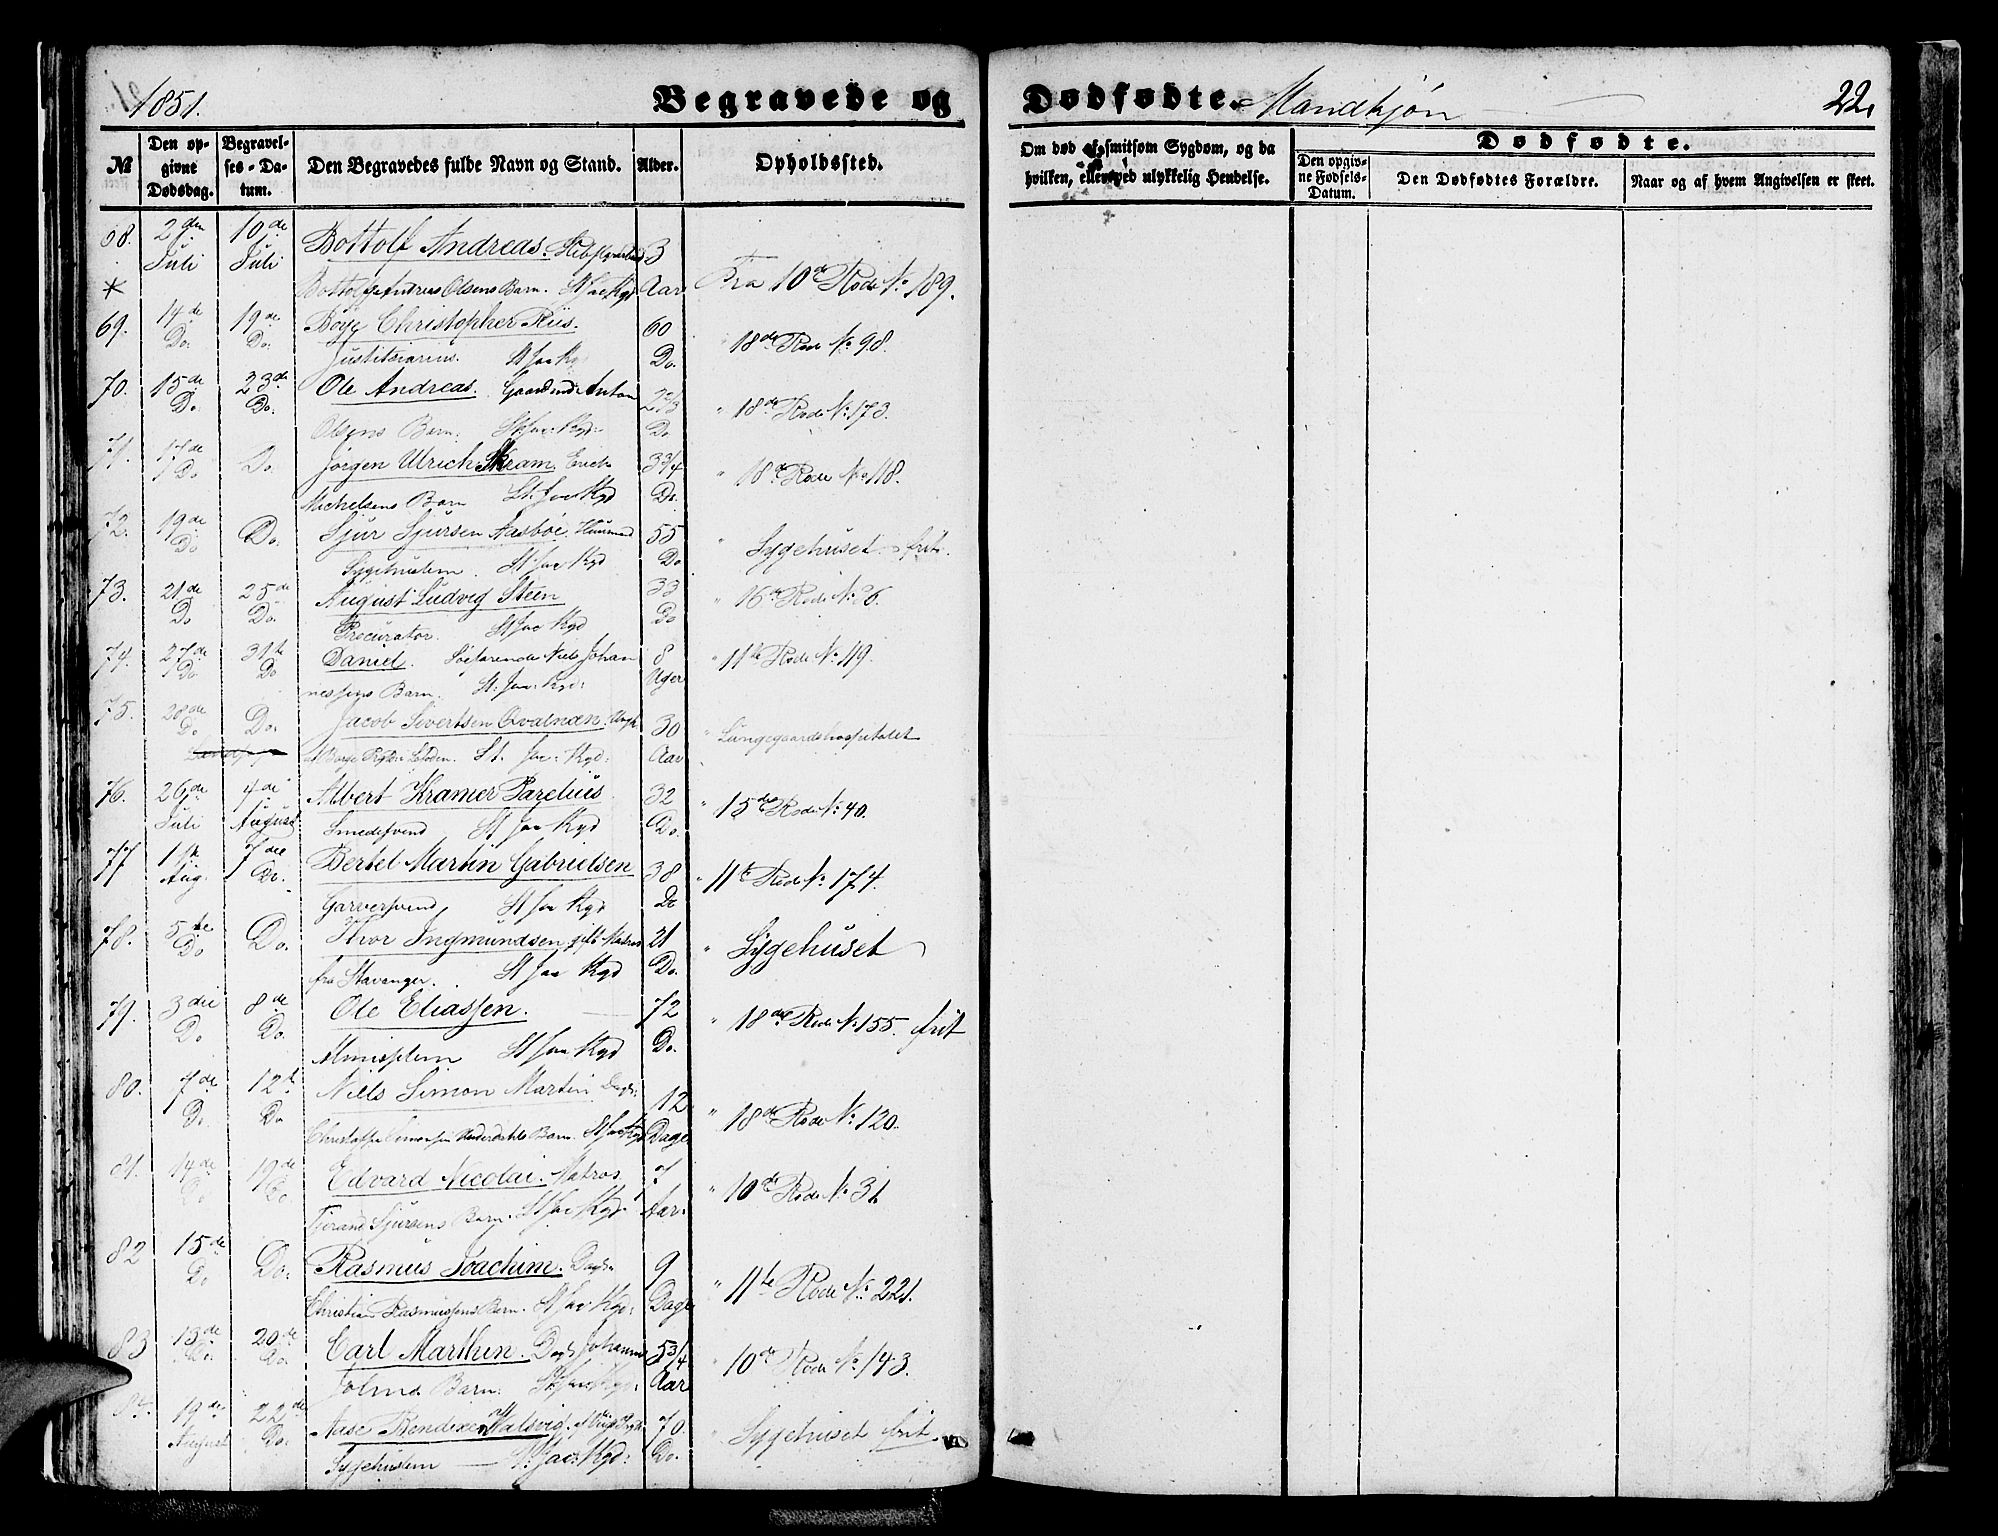 1851.
Begravede og Dødfødte. Mandkjøn 22.
№
Den opgivne Dødsdag.
Begravelses-Datum.
Den Begravedes fulde Navn og Stand.
Alder.
Opholdssted.
Om død af smitsom Sygdom, og da hvilken, eller ved ulykkelig Hendelse.
Dødfødte.
Den opgivne Fødsels-Datum.
Den Dødfødtes Forældre.
Naar og af hvem Angivelsen er skeet.
68. 2den 10de Bottolf Andreas. 3
Juli Juli Bottolf Andreas Olsens Barn. St Jac Kgd Aar Fra 10de Rode No 189.
69. 14de 19de Boye Christopher Riis. 60
Do. Do. Justitsiarius. St Jac K Do. " 18de Rode No 98.
70. 15de 23de Ole Andreas. Anton
Do. Do. Olsens Barn. St Jac. Kgd. Do. " 18de Rode No 173.
71. 17de Do. Jørgen Ulrich Skram. Erich 3 3/4
Do Michelsens Barn St. Jac Kgd Do. " 18de Rode No 118.
72. 19de Do. Sjur Sjursen Aasbøe. Huusmd 55
Do Sygehuslem. St Jac Kgd Do " Sygehuset. frit.
73. 21de 25de August Ludvig Steen 33
Do Do. Procurator. St Jac Kgd Do " 16de Rode No 26.
74. 27de 31te Daniel. Søefarende Niels Johan 8
Do. Do nessens Barn. St. Jac. Kgd: Uger " 11te Rode No 119.
75. 28de Do. Jacob Sivertsen Qvalnæn. 30
Do St. Jac: Kgd: Aar " Lungegaardshospitalet
76. 26de 4de Albert Kramer Parelius 32
Juli August Smedesvend St Jac Kgd Do. " 15de Rode No 40.
77 1ste 7de Bertel Martin Gabrielsen 38
Aug. Do. Garversvend St Jac Kgd Do " 11te Rode No 174.
78. 5te Do. Thor Ingmundsen, gift Matros 21
Do fra Stavanger. St Jac Kgd Do. " Sygehuset
79. 3die 8de Ole Eliassen. 72
Do Do. Almisselem St Jac Kgd Do. " 18de Rode No 155. frit
80. 7de 12te Niels Simon Martin Dagk: 12
Do. Do Barn. St Jac Kgd Dage " 18de Rode No 120.
81. 14de 19de Edvard Nicolai. Matros 7
Do Do. Tjerand Sjursens Barn. St Jac Kgd. Aar. " 10de Rode No 31
82 15de Do. Rasmus Joachim. Dagk: 9
Do Christian Rasmussens Barn. St Jac Kgd: Dage " 11te Rode No 221.
83 13de 20de Carl Marthin. Dagk Johannes 5 3/4
Do. Do. Barn. St Jac Kgd: Aar " 10de Rode No 143.
84. 19de 22de Aase Bendixen 70.
August Do. Sygehuslem St. Jac: Kgd: Do. " Sygehuset frit.